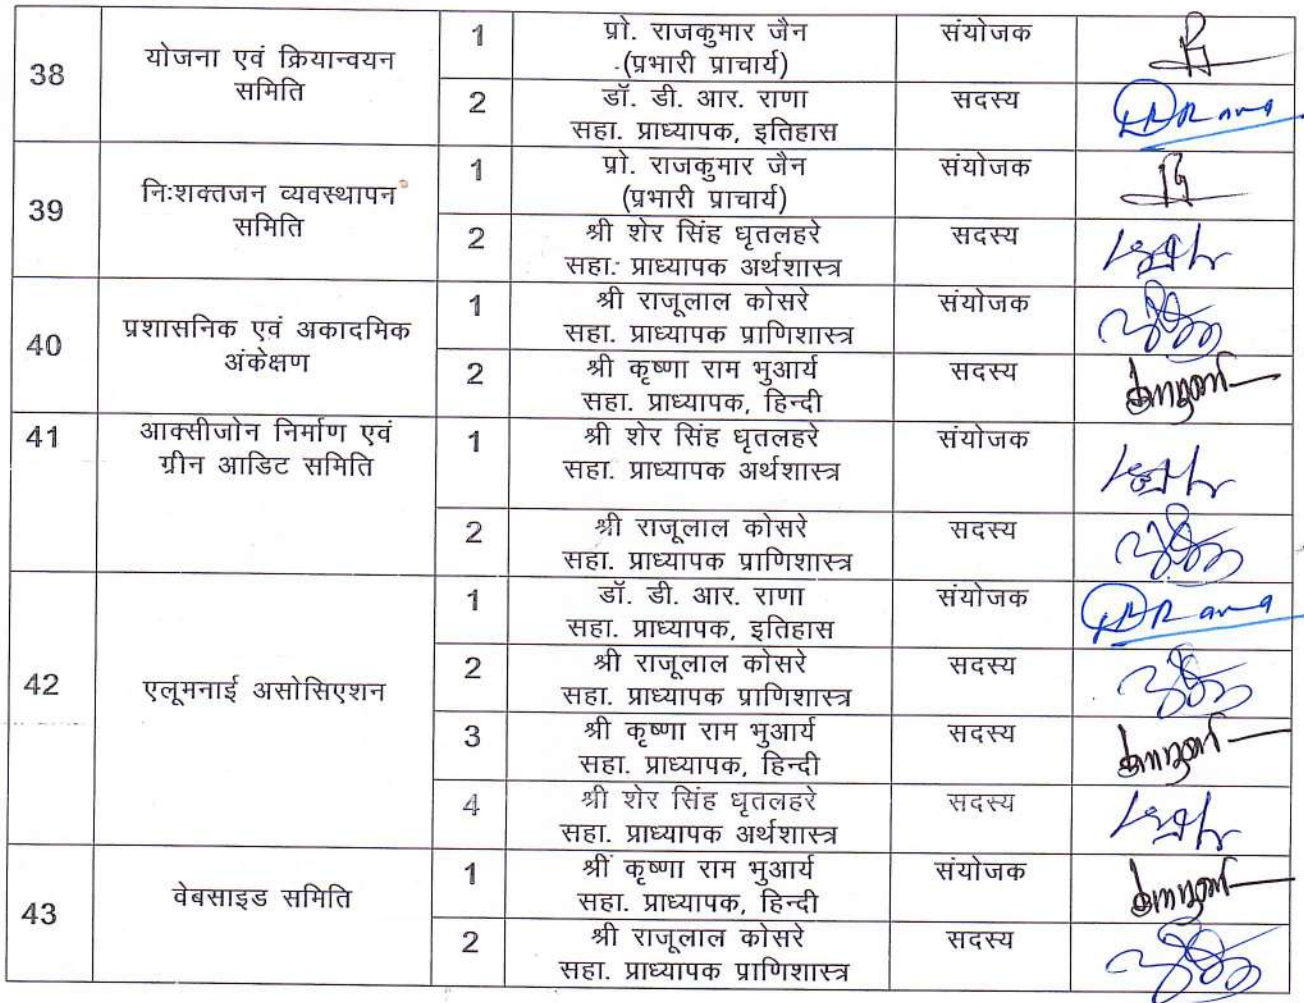 38
योजना एवं क्रियान्वयन
समिति
1
प्रो. राजकुमार जैन
(प्रभारी प्राचार्य)
संयोजक
2
डॉ. डी. आर. राणा
सहा. प्राध्यापक, इतिहास
सदस्य
39
निःशक्तजन व्यवस्थापन
समिति
1
प्रो. राजकुमार जैन
(प्रभारी प्राचार्य)
संयोजक
2
श्री शेर सिंह धृतलहरे
सहा. प्राध्यापक अर्थशास्त्र
सदस्य
40
प्रशासनिक एवं अकादमिक
अंकेक्षण
1
श्री राजूलाल कोसरे
सहा. प्राध्यापक प्राणिशास्त्र
संयोजक
2
श्री कृष्णा राम भुआर्य
सहा. प्राध्यापक, हिन्दी
सदस्य
41
आक्सीजोन निर्माण एवं
ग्रीन आडिट समिति
1
श्री शेर सिंह धृतलहरे
सहा. प्राध्यापक अर्थशास्त्र
संयोजक
2
श्री राजूलाल कोसरे
सहा. प्राध्यापक प्राणिशास्त्र
सदस्य
42
एलूमनाई असोसिएशन
1
डॉ. डी. आर. राणा
सहा. प्राध्यापक, इतिहास
संयोजक
2
श्री राजूलाल कोसरे
सहा. प्राध्यापक प्राणिशास्त्र
सदस्य
3
श्री कृष्णा राम भुआर्य
सहा. प्राध्यापक, हिन्दी
सदस्य
4
श्री शेर सिंह धृतलहरे
सहा. प्राध्यापक अर्थशास्त्र
सदस्य
43
वेबसाइड समिति
1
श्री कृष्णा राम भुआर्य
सहा. प्राध्यापक, हिन्दी
संयोजक
2
श्री राजूलाल कोसरे
सहा. प्राध्यापक प्राणिशास्त्र
सदस्य